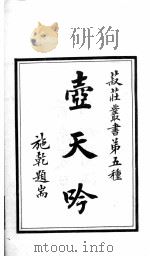 菽莊叢書第五種
壺天吟
施乾題耑